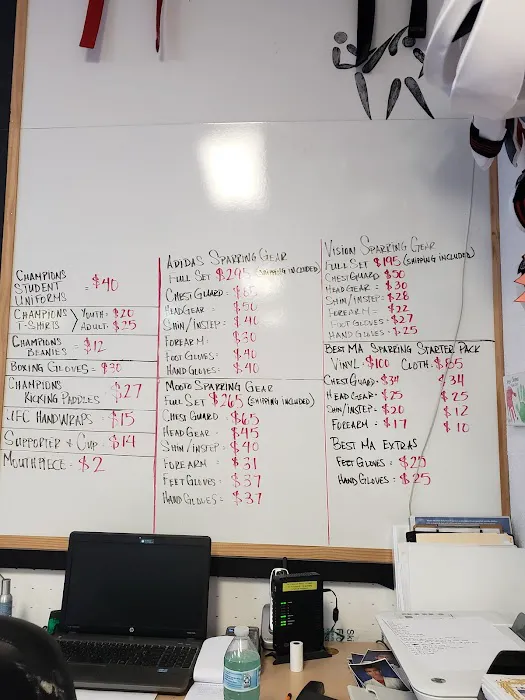 CHAMPIONS
STUDENT
UNIFORMS = $40
CHAMPIONS T-SHIRTS
YOUTH = $20
ADULT = $25
CHAMPIONS
BEANIES = $12
BOXING GLOVES = $30
CHAMPIONS
KICKING PADDLES = $27
UFC HANDWRAPS = $15
SUPPORTER & CUP = $14
MOUTHPIECE = $2
ADIDAS SPARRING GEAR
FULL SET $295 (SHIPPING INCLUDED)
CHESTGUARD = $65
HEADGEAR = $50
SHIN/INSTEP = $40
FOREARM = $30
FOOT GLOVES = $40
HAND GLOVES = $40
MOOTO SPARRING GEAR
FULL SET $265 (SHIPPING INCLUDED)
CHEST GUARD = $65
HEAD GEAR = $45
SHIN/INSTEP = $40
FOREARM = $31
FEET GLOVES = $37
HAND GLOVES = $37
VISION SPARRING GEAR
FULL SET $195 (SHIPPING INCLUDED)
CHESTGUARD $50
HEAD GEAR = $30
SHIN/INSTEP = $28
FOREARM = $22
FOOT GLOVES = $27
HAND GLOVES = $25
BEST MA SPARRING STARTER PACK
VINYL = $100 CLOTH = $85
CHEST GUARD = $34 $34
HEAD GEAR = $25 $25
SHIN/INSTEP = $20 $12
FOREARM = $17 $10
BEST MA EXTRAS
FEET GLOVES = $25
HAND GLOVES = $25